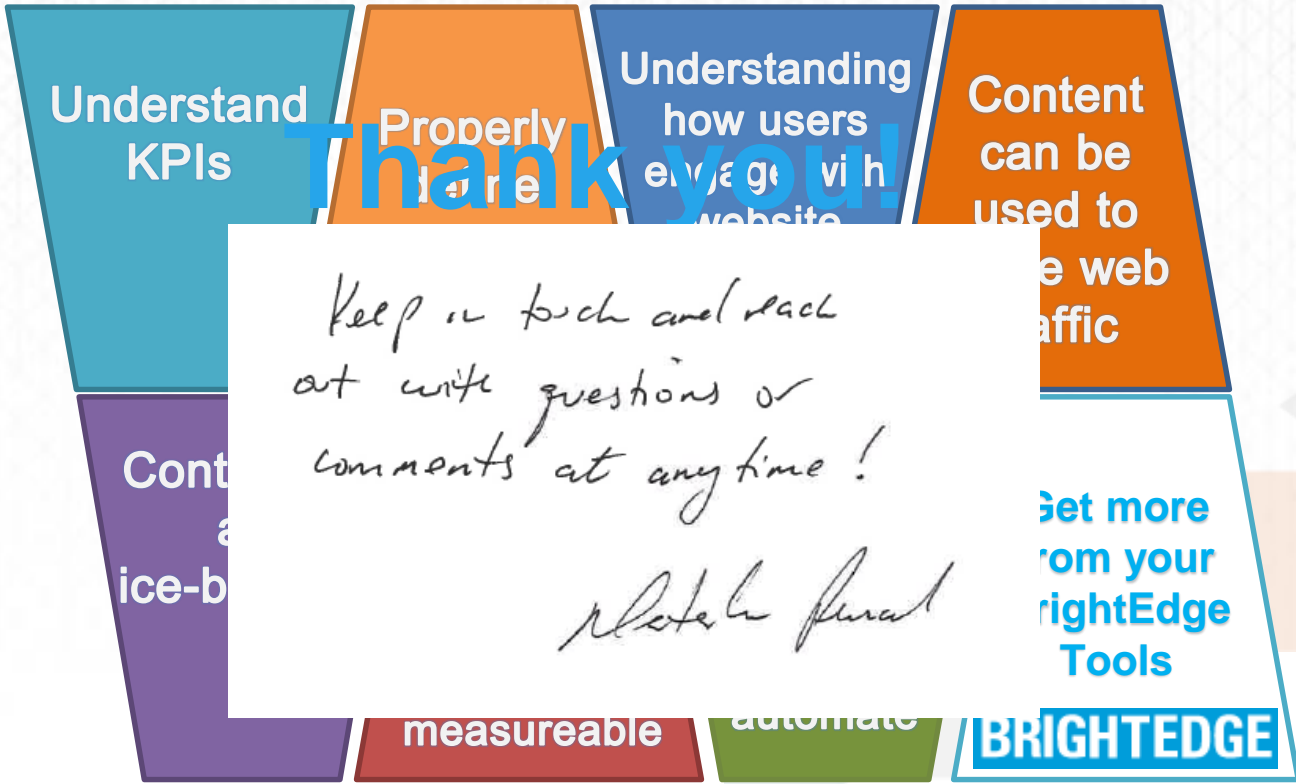 Understand
KPIs
Properly
define
Understanding
how users
engage with
website
Content
can be
used to
e web
affic
Thank you!
Keep in touch and reach
out with questions or
comments at anytime!
Cont
a
ice-b
measureable
automate
Get more
rom your
rightEdge
Tools
BRIGHTEDGE